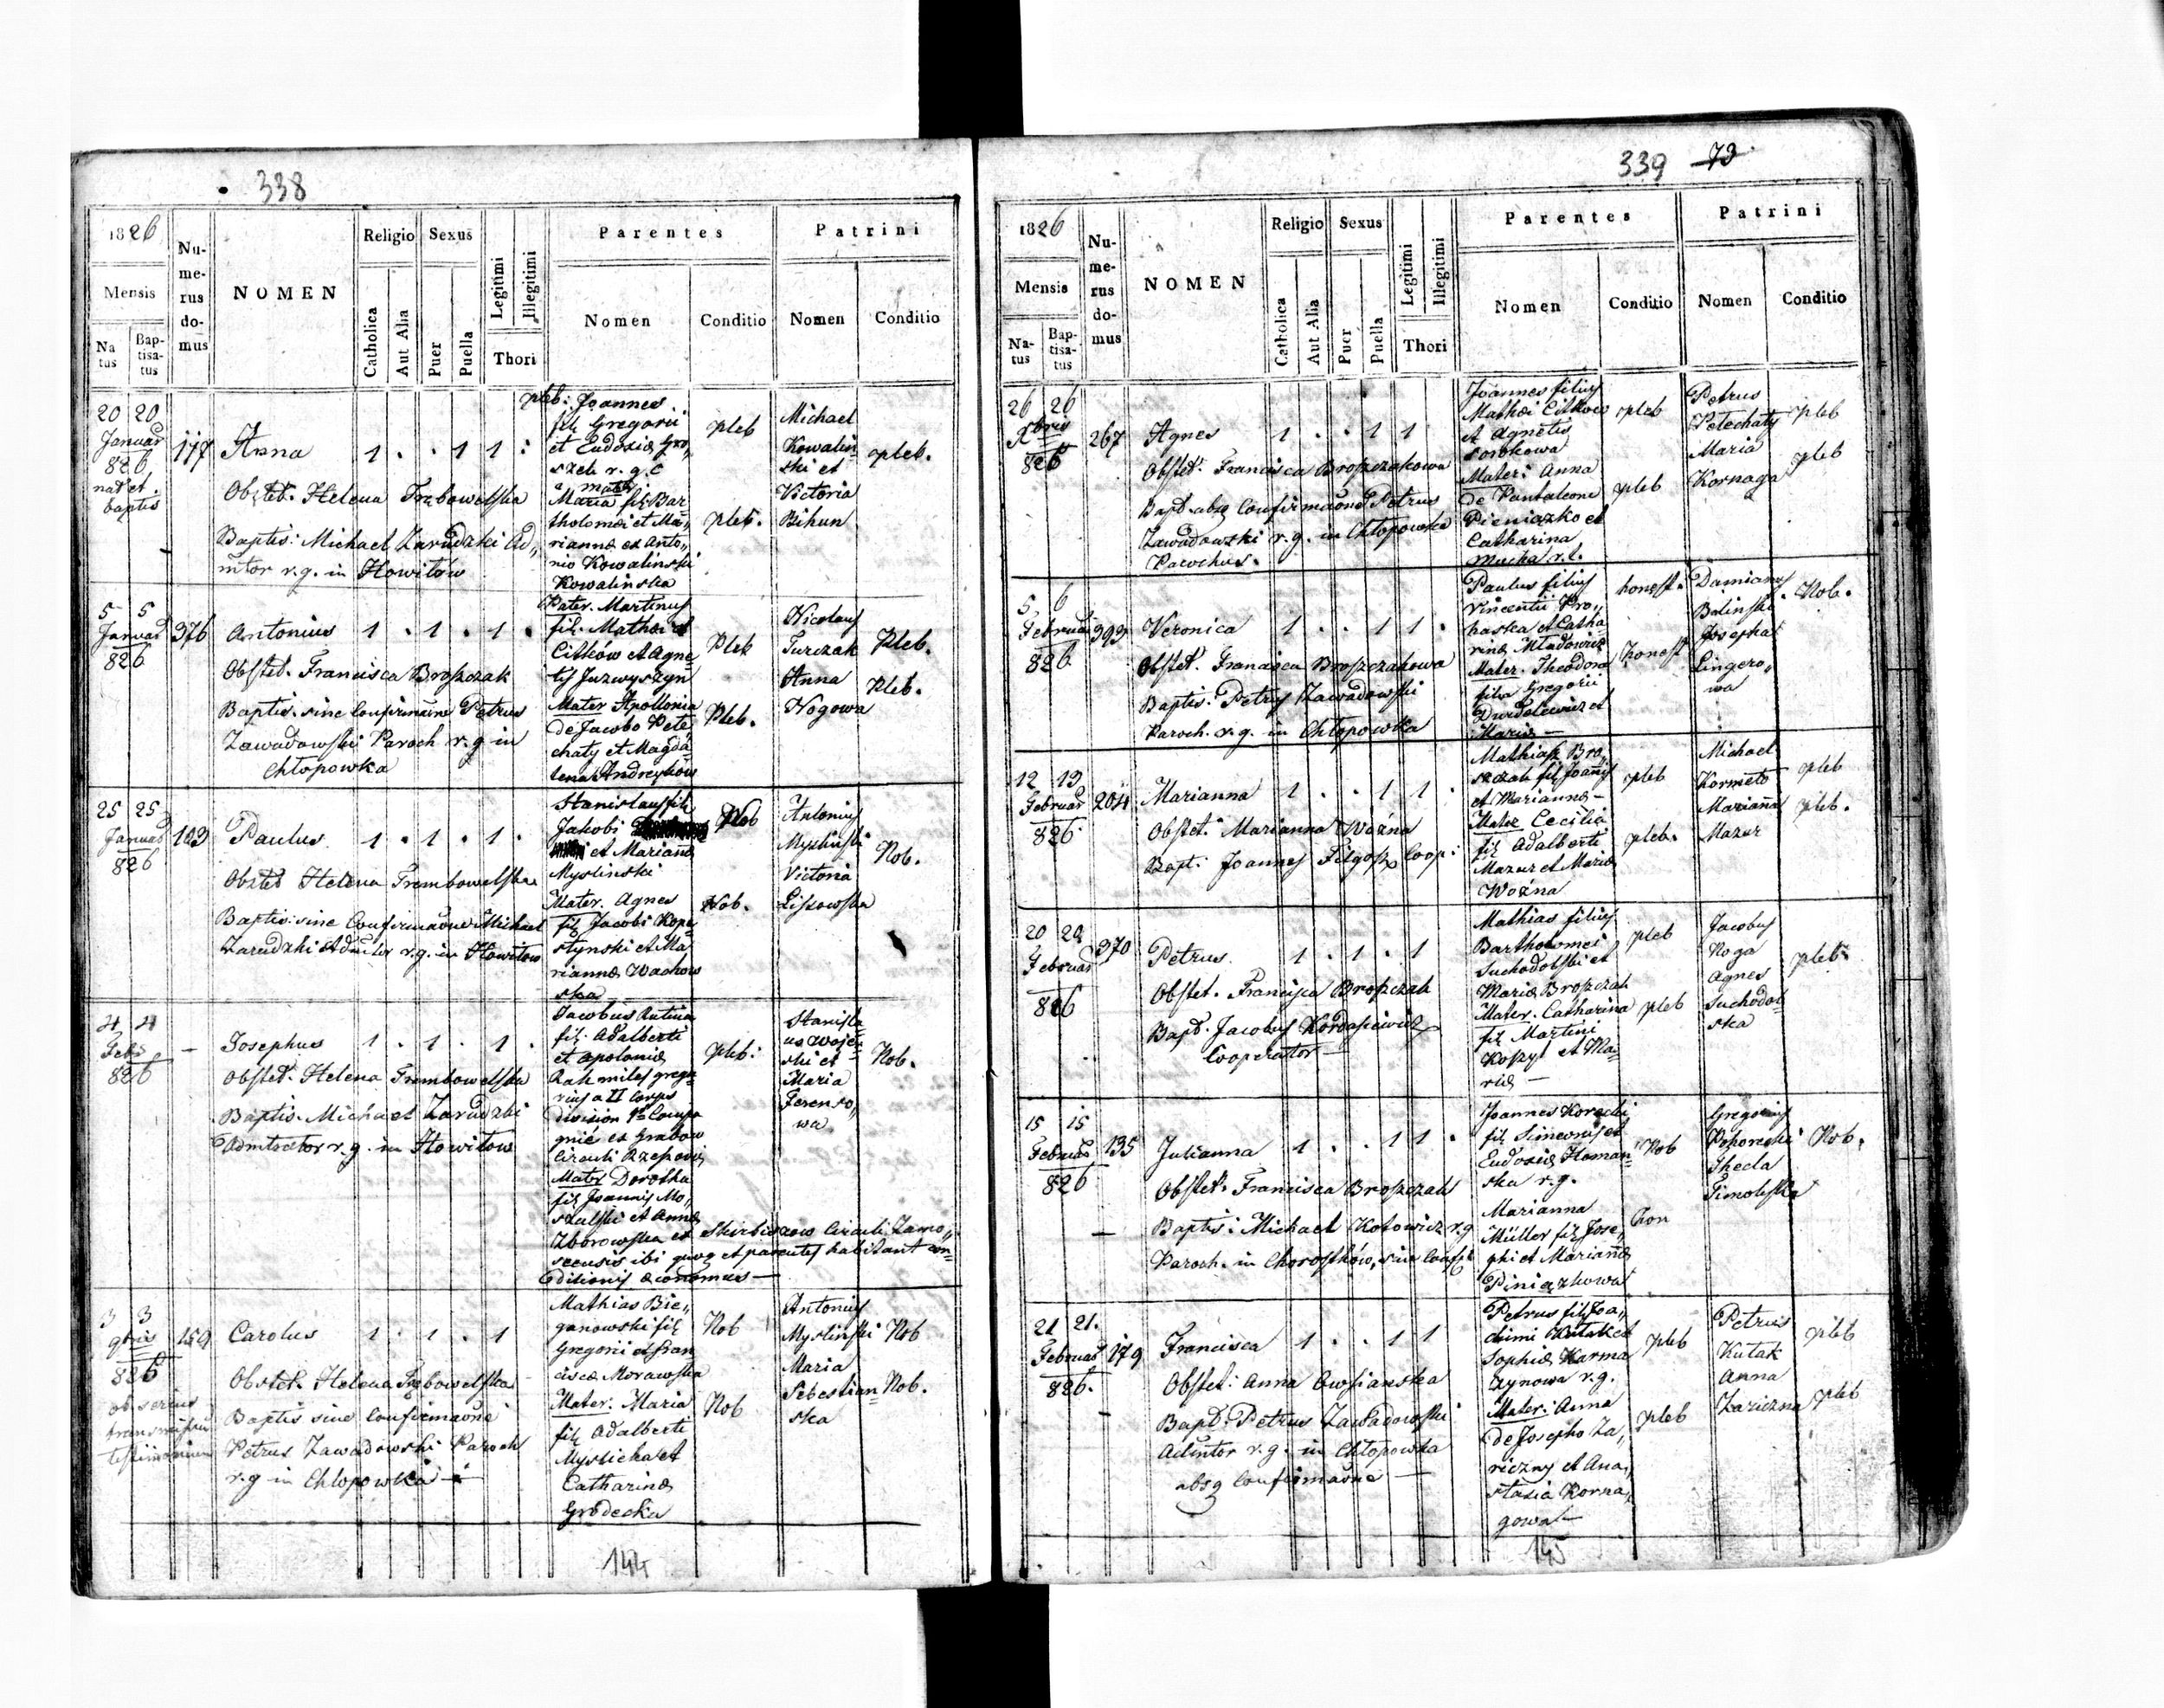 338
1826
Mensis
Natus
Baptisatus
Numerus domus
NOMEN
Religio
Catholica
Aut Alia
Sexus
Puer
Puella
Legitimi
Illegitimi
Thori
Parentes
Nomen
Conditio
Patrini
Nomen
Conditio
20 20
Januar
826
nat et
baptis
117
Anna
1 . . 1 1 :
Obstet. Helena Trębowelska
Baptis: Michael Zarudzki Ad„
mtor r.g. in Howitów
pleb: Joannes
fil Gregorii
et Eudoxiæ Gro„
szek r. g. c
a mater
Maria fil Bar
tholomæi et Ma„
riannæ ex Anto„
nio Kowalinski
Kowalinska
pleb
pleb.
Michael
Kowalin
ski et
Victoria
Bihun
pleb.
5 5
Januar
826
376
Antonius
1 . 1 . 1 .
Obstet. Francisca Broszczak
Baptis. sine Confirmãone Petrus
Zawadowski Paroch r. g in
Chłopowka
Pater. Martinus
fil. Mathæi et
Citków et Agne
tis Juzwyszyn
Mater Apollonia
de Jacobo Pete
chaty et Magda
lena Andreyków
Pleb
Pleb.
Nicolaus
Turczak
Anna
Nogowa
Pleb.
Pleb.
25 25
Januar
826
103
Paulus
1 . 1 . 1 .
Obstet Helena Trembowelska
Baptis: sine Confirmaõne Michael
Zarudzki Admtor r.g. in Howitow
Stanislaus fil
Jakobi
et Mariannæ
Myslinski
Mater. Agnes
fil Jacobi Kope
stynski et Ma
riannæ Wachow
ska
Nob
Nob.
Antonius
Myslinski
Victoria
Lissowska
Nob.
4 4
Febr
826
—
Josephus
1 . 1 . 1 .
Obstet. Helena Trembowelska
Baptis. Michael Zarudzki
Admtrator r.g. in Howitow
Jacobus Rutina
fil. Adalberti
et Apoloniæ
Rak miles grega
rius a II Corps
division 1ª Compa
gnie ex Grabow
Circuli Rzeszov
Mater Dorotha
fil Joannis Mo„
szulski et Annæ
Zborowska ex Skierbieszow Circuli Zamo„
scensis ibi quoq et parentes habitant con
ditionis œconomus —
pleb:
Stanisla
us Woje
ski et
Maria
Ferenso„
wa
Nob.
3 3
9bris
826
159
Carolus
1 . 1 . 1
Obstet. Helena Trębowelska
Baptis sine Confirmaõne
Petrus Zawadowski Paroch
r.g in Chłopowka
ob serius
transmissum
testimonium
Mathias Bie„
ganowski fil
Gregorii et Fran
ciscæ Morawska
Mater: Maria
fil Adalberti
Myslicha et
Catharinæ
Grodecka
Nob
Nob
Antonius
Myslinski
Maria
Sebestian
ska
Nob
Nob.
144
339 73
1826
Mensis
Natus
Baptisatus
Numerus domus
NOMEN
Religio
Catholica
Aut Alia
Sexus
Puer
Puella
Legitimi
Illegitimi
Thori
Parentes
Nomen
Conditio
Patrini
Nomen
Conditio
26 26
Xbris
826
267
Agnes
1 . . 1 1
Obstet. Francisca Broszczakowa
Bapt. absq Confirmaõne Petrus
Zawadowski r. g. in Chłopowka
Parochus.
Joannes filius
Mathæi Citkow
et Agnetis
Sorokowa
Mater: Anna
de Pantaleone
Pieniązko et
Catharina
Mucha r. l.
pleb
pleb
Petrus
Petechaty
Maria
Kornaga
pleb
pleb
5 6
Februar
826
393
Veronica
1 . . 1 1 .
Obstet. Francisca Broszczakowa
Baptis. Petrus Zawadowski
Paroch. r. g. in Chłopowka
Paulus filius
Vincentii Pro„
haska et Catha
rinæ Mładowicz
Mater. Theodora
filia Gregorii
Durdelewicz et
Mariæ —
honest.
honest
Damianus
Balinski
Josepha
Lingero„
wa
Nob.
12 13
Februar
826
204
Marianna
1 . . 1 1 .
Obstet. Marianna Woźna
Bapt: Joannes Filgosz Coop:
Mathias Bro„
szczak fil Joannis
et Mariannæ —
Mater Cecilia
fil Adalberti
Mazur et Mariæ
Woźna
pleb
pleb.
Michael
Kormeto
Marianna
Mazur
pleb
pleb.
20 24
Februar
826
370
Petrus
1 . 1 . 1
Obstet. Francisca Broszczak
Bapt. Jacobus Kordasiewicz
Cooperator —
Mathias filius
Bartholomei
Suchodolski et
Mariæ Broszczak
Mater. Catharina
fil Martini
Kopyt et Ma
riæ —
pleb
pleb
Jacobus
Noga
Agnes
Suchodol
ska
pleb
15 15
Februar
826
135
Julianna
1 . . 1 1 .
Obstet. Francisca Broszczak
Baptis: Michael Kotowicz r. g
Paroch. in Chorostków, sine Conf
Joannes Korecki
fil Simeonis et
Eudoxiæ Homan
ska r. g.
Marianna
Müller fil Jose„
phi et Mariannæ
Piniązkowa
Nob
hon
Gregorius
Pohorecki
Thecla
Simolska
Nob.
21 21.
Februar
826.
179
Francisca
1 . . 1 1
Obstet: Anna Owsianska
Bapt. Petrus Zawadowski
Admtor r. g. in Chłopowka
absq Confirmaõne —
Petrus fil Joa„
chimi Kutak et
Sophiæ Karma
zynowa r. g.
Mater: Anna
de Josepho Za„
riczny et Ana„
stasia Korna„
gowa —
pleb
pleb
Petrus
Kutak
Anna
Zariczna
pleb
pleb
145